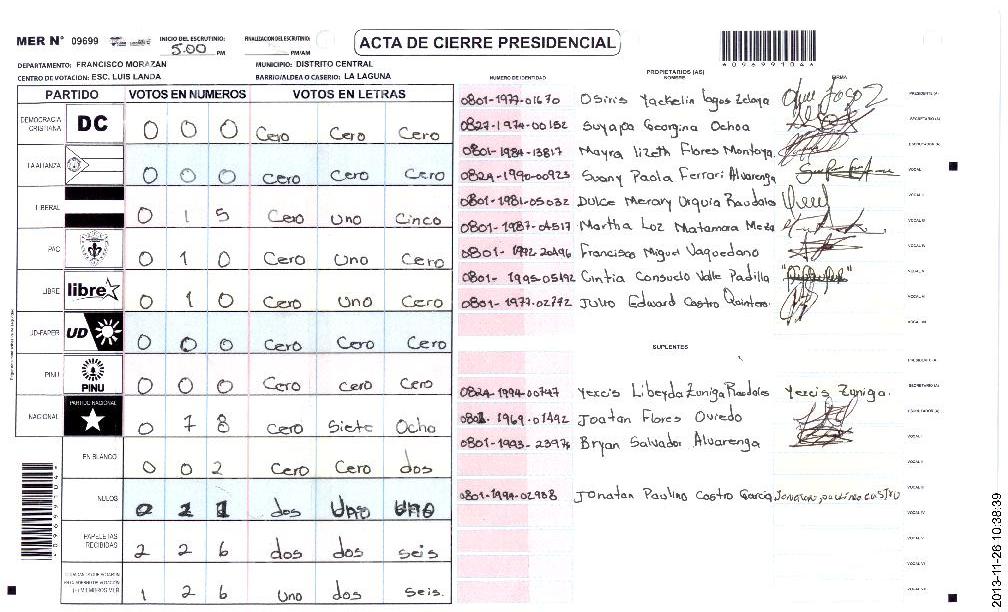 MER N° 09699
INICIO DEL ESCRUTINIO: 5:00 PM
FINALIZACION DEL ESCRUTINIO: PM/AM
ACTA DE CIERRE PRESIDENCIAL
DEPARTAMENTO: FRANCISCO MORAZAN
MUNICIPIO: DISTRITO CENTRAL
CENTRO DE VOTACION: ESC. LUIS LANDA
BARRIO/ALDEA O CASERIO: LA LAGUNA
PARTIDO VOTOS EN NUMEROS VOTOS EN LETRAS
DEMOCRACIA CRISTIANA DC 0 0 0 Cero Cero Cero
LA ALIANZA 0 0 0 Cero Cero Cero
LIBERAL 0 1 5 Cero Uno Cinco
PAC 0 1 0 Cero Uno Cero
LIBRE libre 0 1 0 Cero Uno Cero
UD-FAPER UD 0 0 0 Cero Cero Cero
PINU PINU 0 0 0 Cero cero Cero
NACIONAL PARTIDO NACIONAL 0 7 8 Cero Siete Ocho
EN BLANCO 0 0 2 Cero Cero dos
NULOS dos Uno Uno
PAPELETAS RECIBIDAS 2 2 6 dos dos seis
1 2 6 Uno dos seis.
NUMERO DE IDENTIDAD
PROPIETARIOS (AS)
NOMBRE
FIRMA
0801-1977-01670 Osiris Yackelin Lagos Zelaya PRESIDENTE (A)
0827-1974-00152 Suyapa Georgina Ochoa SECRETARIO (A)
0801-1984-13817 Mayra lizeth Flores Montoya. ESCRUTADOR (A)
0824-1990-00923 Suany Paola Ferrari Alvarenga VOCAL I
0801-1981-05032 Dulce Merary Urquia Raudales VOCAL II
0801-1987-04517 Martha Luz Matamora Meza VOCAL III
0801-1992-20496 Francisco Miguel Vaquedano VOCAL IV
0801-1995-05492 Cintia Consuelo Valle Padilla VOCAL V
0801-1977-02742 Julio Edward Castro Quintero. VOCAL VI
VOCAL VII
SUPLENTES
PRESIDENTE (A)
0824-1994-00747 Yexcis Libeyda Zuniga Raudales Yexcis Zuniga. SECRETARIO (A)
1969-01492 Joatan Flores Oviedo ESCRUTADOR (A)
0801-1993-23976 Bryan Salvador Alvarenga VOCAL I
VOCAL II
0801-1994-02908 Jonatan Paulino Castro Garcia Jonatan paulino CASTRO VOCAL III
VOCAL IV
VOCAL V
VOCAL VI
VOCAL VII
2013-11-26 10:38:39